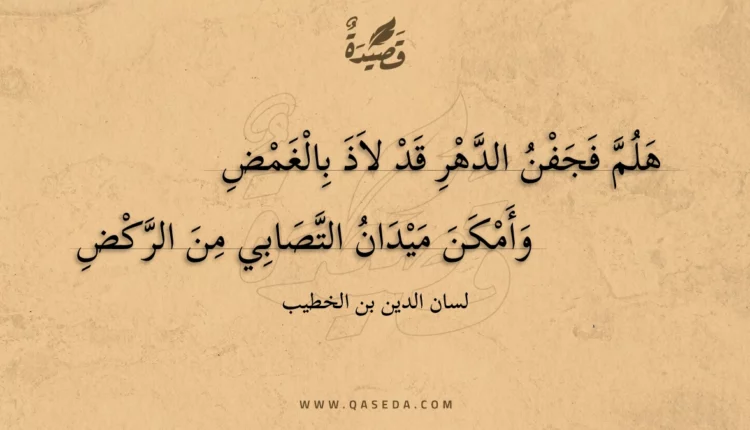 قَصِيْدَةٌ
هَلُمَّ فَجَفْنُ الدَّهْرِ قَدْ لاَذَ بِالْغَمْضِ
وَأَمْكَنَ مَيْدَانُ التَّصَابِي مِنَ الرَّكْضِ
لسان الدين بن الخطيب
WWW.QASEDA.COM